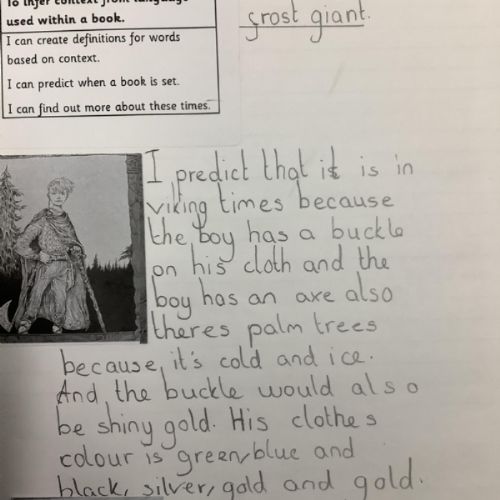 To infer context from language
used within a book.
I can create definitions for words
based on context.
I can predict when a book is set.
I can find out more about these times.
frost giant.
I predict that it is in
viking times because
the boy has a buckle
on his cloth and the
boy has an axe also
theres palm trees
because it's cold and ice.
And the buckle would also
be shiny gold. His clothes
colour is green, blue and
black, silver, gold and gold.